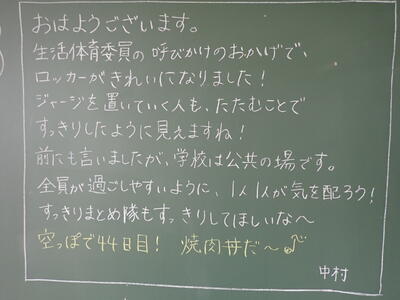 おはようございます。
生活体育委員の呼びかけのおかげで、
ロッカーがきれいになりました！
ジャージを置いていく人も、たたむことで
すっきりしたように見えますね！
前にも言いましたが、学校は公共の場です。
全員が過ごしやすいように、1人1人が気を配ろう！
すっきりまとめ隊もすっきりしてほしいな～
空っぽで44日目！ 焼肉丼だ～
中村